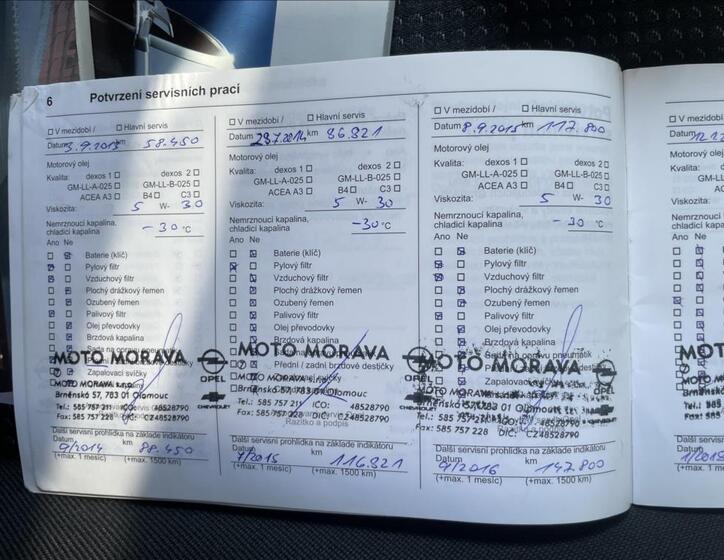 6 Potvrzení servisních prací
V mezidobí / Hlavní servis
Datum 3.9.2013 km 58.450
Motorový olej
Kvalita: dexos 1 dexos 2
GM-LL-A-025 GM-LL-B-025
ACEA A3 B4 C3
Viskozita: 5 W- 30
Nemrznoucí kapalina,
chladicí kapalina -30 °C
Ano Ne
Baterie (klíč)
Pylový filtr
Vzduchový filtr
Plochý drážkový řemen
Ozubený řemen
Palivový filtr
Olej převodovky
Brzdová kapalina
MOTO MORAVA
Zapalovací svíčky
OPEL
MOTO MORAVA
Brněnská 57, 783 01 Olomouc
CHEVROLET
Tel.: 585 757 211 IČO: 48528790
Fax: 585 757 228 DIČ: CZ48528790
Další servisní prohlídka na základě indikátoru
Datum km
9/2014 88.450
(+max. 1 měsíc) (+max. 1500 km)
V mezidobí / Hlavní servis
Datum 29.7.2014 km 86.821
Motorový olej
Kvalita: dexos 1 dexos 2
GM-LL-A-025 GM-LL-B-025
ACEA A3 B4 C3
Viskozita: 5 W- 30
Nemrznoucí kapalina,
chladicí kapalina -30 °C
Ano Ne
Baterie (klíč)
Pylový filtr
Vzduchový filtr
Plochý drážkový řemen
Ozubený řemen
Palivový filtr
Olej převodovky
Brzdová kapalina
MOTO MORAVA
Přední / zadní brzdové destičky
OPEL
MOTO MORAVA
Brněnská 57, 783 01 Olomouc
CHEVROLET
Tel.: 585 757 211 IČO: 48528790
Fax: 585 757 228 DIČ: CZ48528790
Razítko a podpis
Další servisní prohlídka na základě indikátoru
Datum km
7/2015 116.821
(+max. 1 měsíc) (+max. 1500 km)
V mezidobí / Hlavní servis
Datum 8.9.2015 km 117.800
Motorový olej
Kvalita: dexos 1 dexos 2
GM-LL-A-025 GM-LL-B-025
ACEA A3 B4 C3
Viskozita: 5 W- 30
Nemrznoucí kapalina,
chladicí kapalina -30 °C
Ano Ne
Baterie (klíč)
Pylový filtr
Vzduchový filtr
Plochý drážkový řemen
Ozubený řemen
Palivový filtr
Olej převodovky
Brzdová kapalina
Sada na opravu pneumatik
MOTO MORAVA
Zapalovací
OPEL
MOTO MORAVA
Brněnská 57, 783 01 Olomouc
Tel.: 585 757 211 IČO: 48528790
Fax: 585 757 228 DIČ: CZ48528790
Další servisní prohlídka na základě indikátoru
Datum km
9/2016 147.800
(+max. 1 měsíc) (+max. 1500 km)
V me
Datum
Motorov
Kvalita:
Viskozita
Nemrzn
chladicí
Ano Ne
MOT
MOTO
Brněnsk
Tel.: 585
Fax: 585
Další serv
Datum
(+max. 1